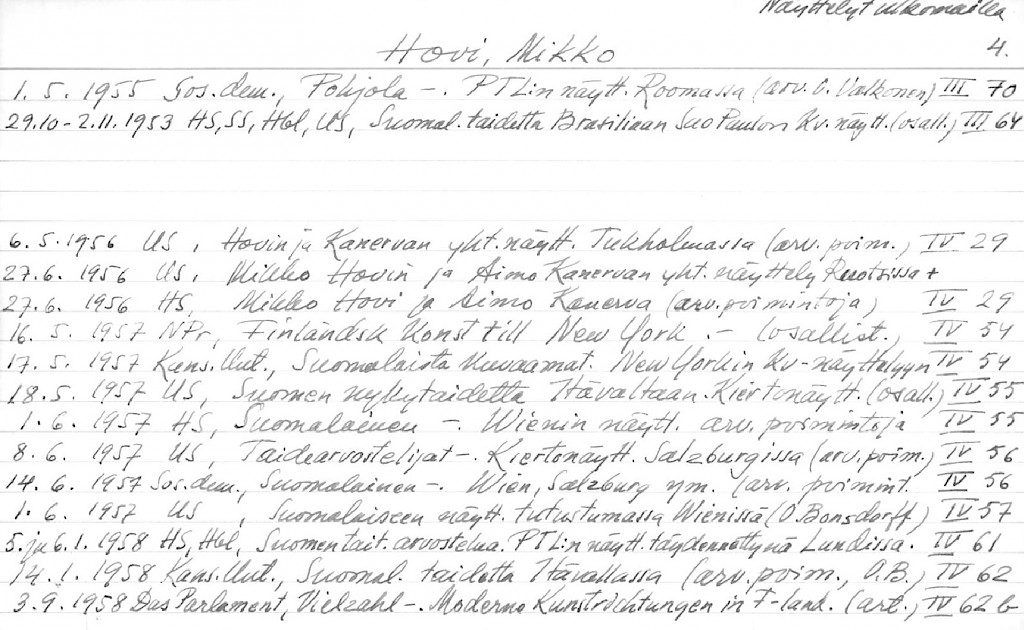 Näyttelyt ulkomailla
4.
Hovi, Mikko
1. 5. 1955 Sos.dem., Pohjola -. PTL:n näytt. Roomassa (arv. O. Valkonen) III 70
29.10-2.11.1953 HS, SS, Hbl, US, Suomal. taidetta Brasiliaan Sao Paulon Kv. näytt. (osall.) III 64
6. 5. 1956 US, Hovin ja Kanervan yht. näytt. Tukholmassa (arv. poim.) IV 29
27.6. 1956 US, Mikko Hovin ja Aimo Kanervan yht. näyttely Ruotsissa +
27.6. 1956 HS, Mikko Hovi ja Aimo Kanerva (arv. poimintoja) IV 29
16. 5. 1957 NPr, Finländsk Konst till New York - (osallist.) IV 54
17. 5. 1957 Kans.Uut., Suomalaista kuvaamat. New Yorkin Kv-näyttelyyn IV 54
18.5. 1957 US, Suomen nykytaidetta Itävaltaan. Kiertonäytt. (osall.) IV 55
1. 6. 1957 HS, Suomalainen -. Wienin näytt. arv. poimintoja IV 55
8. 6. 1957 US, Taidearvostelijat -. Kiertonäytt. Salzburgissa (arv. poim.) IV 56
14. 6. 1957 Sos.dem., Suomalainen -. Wien, Salzburg ym. (arv. poimint. IV 56
1. 6. 1957 US, Suomalaiseen näytt. tutustumassa Wienissä (O. Bonsdorff) IV 57
5. ja 6.1. 1958 HS, Hbl, Suomen tait. arvostelua. PTL:n näytt. täydennettynä Lundissa. IV 61
14.1. 1958 Kans.Uut., Suomal. taidetta Itävallassa (arv. poim., O.B.) IV 62
3.9. 1958 Das Parlament, Vielzahl -. Moderne Kunstrichtungen in F-land. (art.) IV 62 b